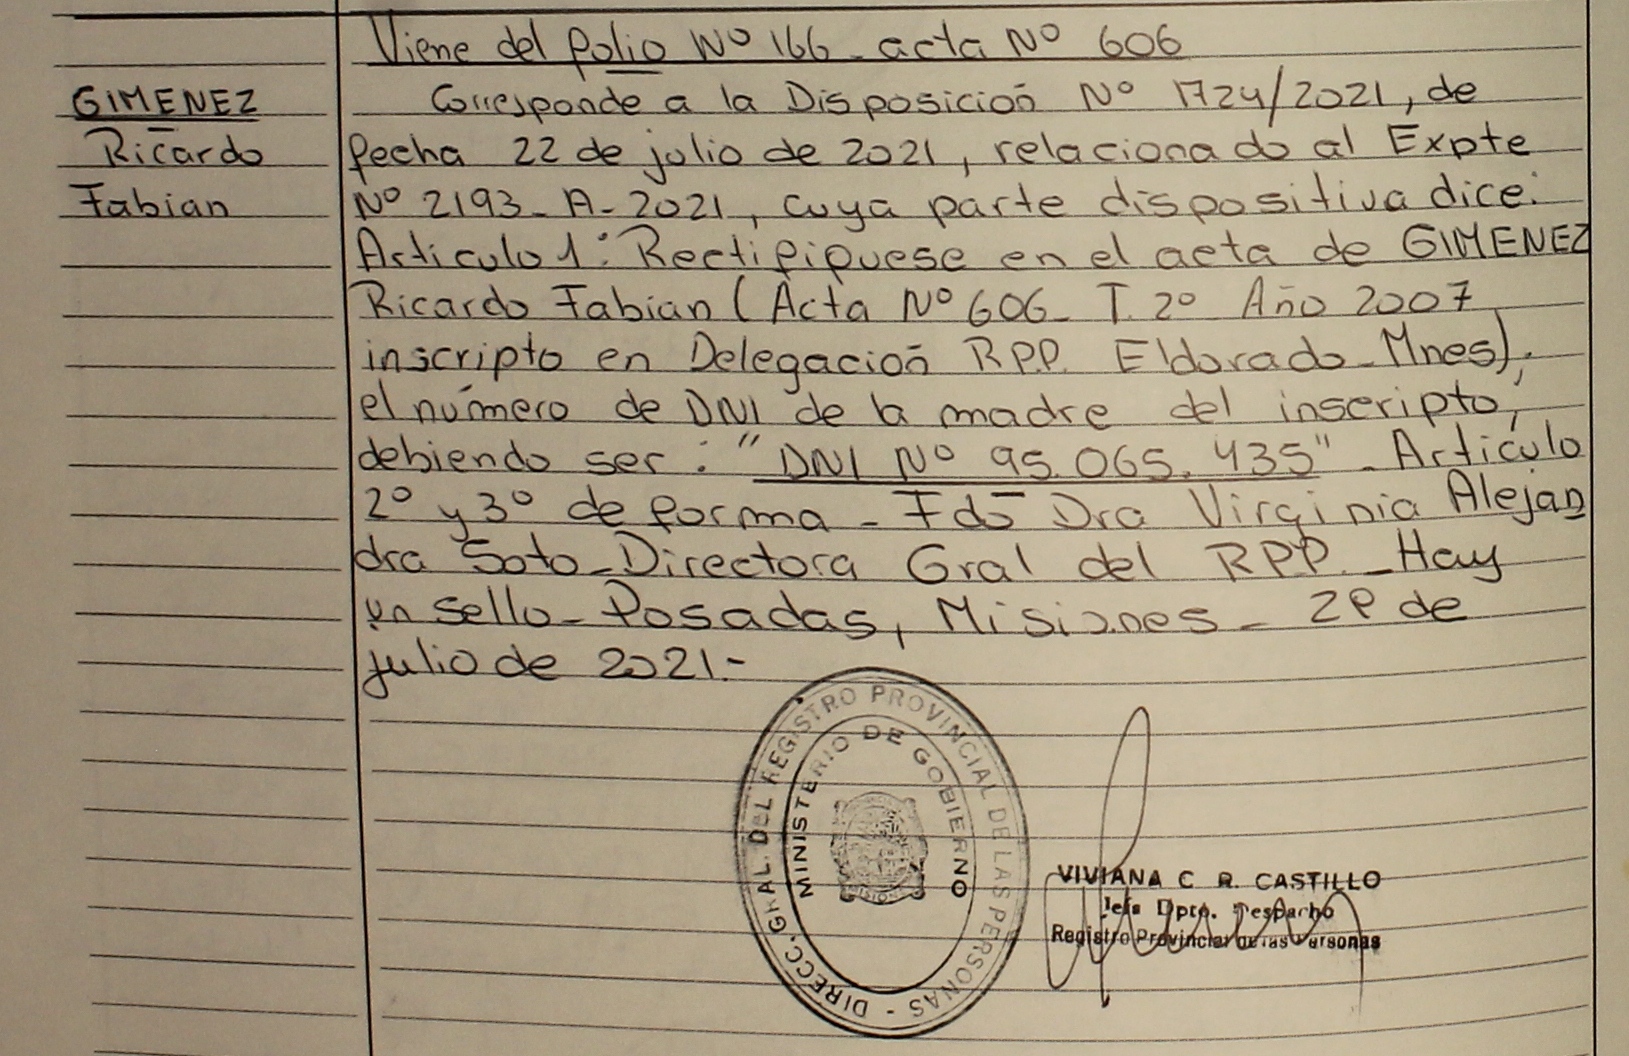 Viene del folio Nº 166 - acta Nº 606
GIMENEZ
Ricardo
Fabian
Corresponde a la Disposición Nº 1724/2021, de
fecha 22 de julio de 2021, relacionado al Expte
Nº 2193 - A - 2021, cuya parte dispositiva dice:
Articulo 1º: Rectifiquese en el acta de GIMENEZ
Ricardo Fabian (Acta Nº 606 - T. 2º Año 2007
inscripto en Delegación R.P.P. Eldorado - Mnes),
el número de DNI de la madre del inscripto,
debiendo ser: "DNI Nº 95.065.435". Artículo
2º y 3º de forma - Fdo Dra Virginia Alejan
dra Soto - Directora Gral del RPP. - Hay
un sello - Posadas, Misiones -
de
julio de 2021.-
DIRECC. GRAL. DEL REGISTRO PROVINCIAL DE LAS PERSONAS -
MINISTERIO DE GOBIERNO
VIVIANA C. R. CASTILLO
Jefa Dpto. Despacho
Registro Provincial de las Personas